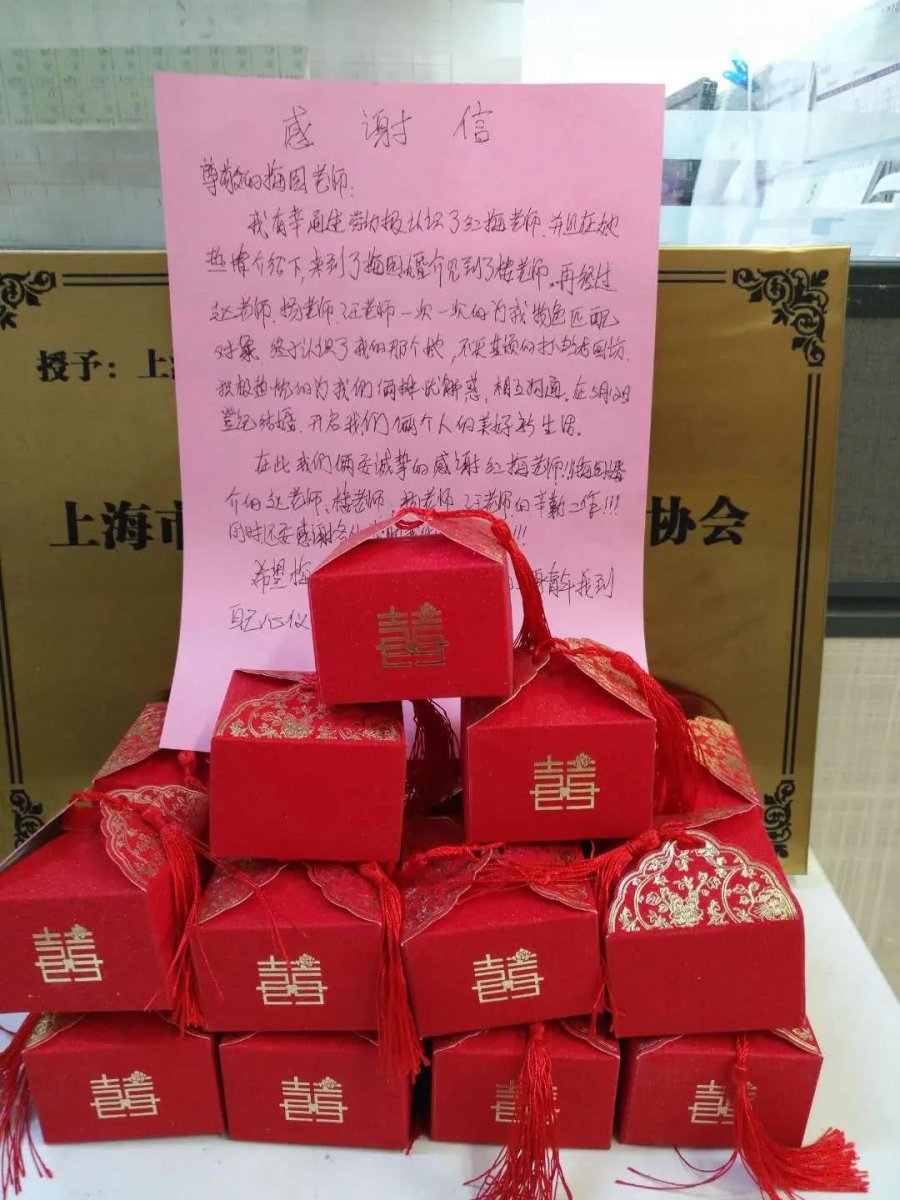 感谢信
尊敬的梅园老师:
我有幸通过劳动报认识了红梅老师.并且在她
热情介绍下,来到了梅园婚介见到了楼老师。再经过
赵老师.杨老师.汪老师一次一次的为我物色匹配
对象.终于认识了我的那个她,不厌其烦的打电话回访.
积极热忱的为我们俩排忧解惑,相互沟通.在5月20日
登记结婚.开启我们俩个人的美好新生活。
在此我们俩要诚挚的感谢红梅老师!!梅园婚
介的赵老师、楼老师、杨老师、汪老师的辛勤工作!!!
同时还要感谢各位
希望梅 青年找到
自己心仪
授予:上海
上海市 协会
囍
囍
囍
囍
囍
囍
囍
囍
囍